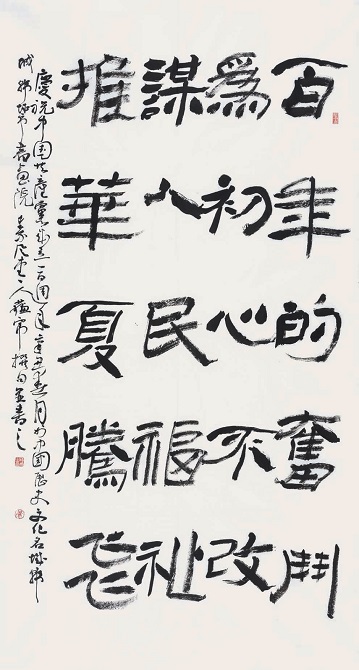 百年的奮鬥
爲初心不改
謀人民福祉
推華夏騰飛
慶祝中国共產黨成立一百周年辛丑春月於中國歷史文化名城
書画院 撰句並書之